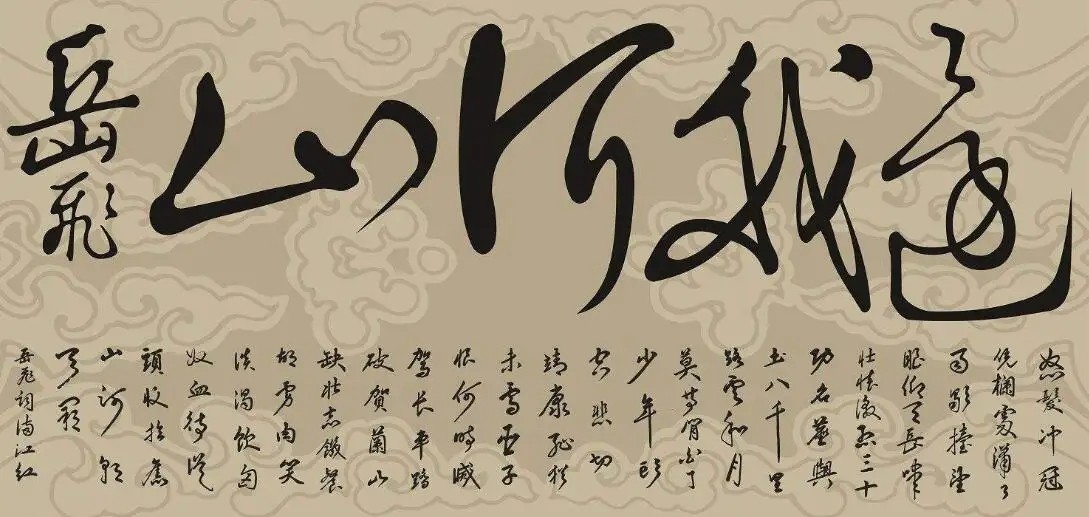 還我河山
岳飛
怒髮冲冠
凭欄處瀟々
雨歇擡望
眼仰天長嘯
壯懷激烈三十
功名塵與
土八千里
路雲和月
莫等閒白了
少年頭
空悲切
靖康恥猶
未雪臣子
恨何時滅
駕長車踏
破賀蘭山
缺壯志飢餐
胡虜肉笑
談渴飲匈
奴血待從
頭收拾舊
山河朝
天闕
岳飛詞滿江紅